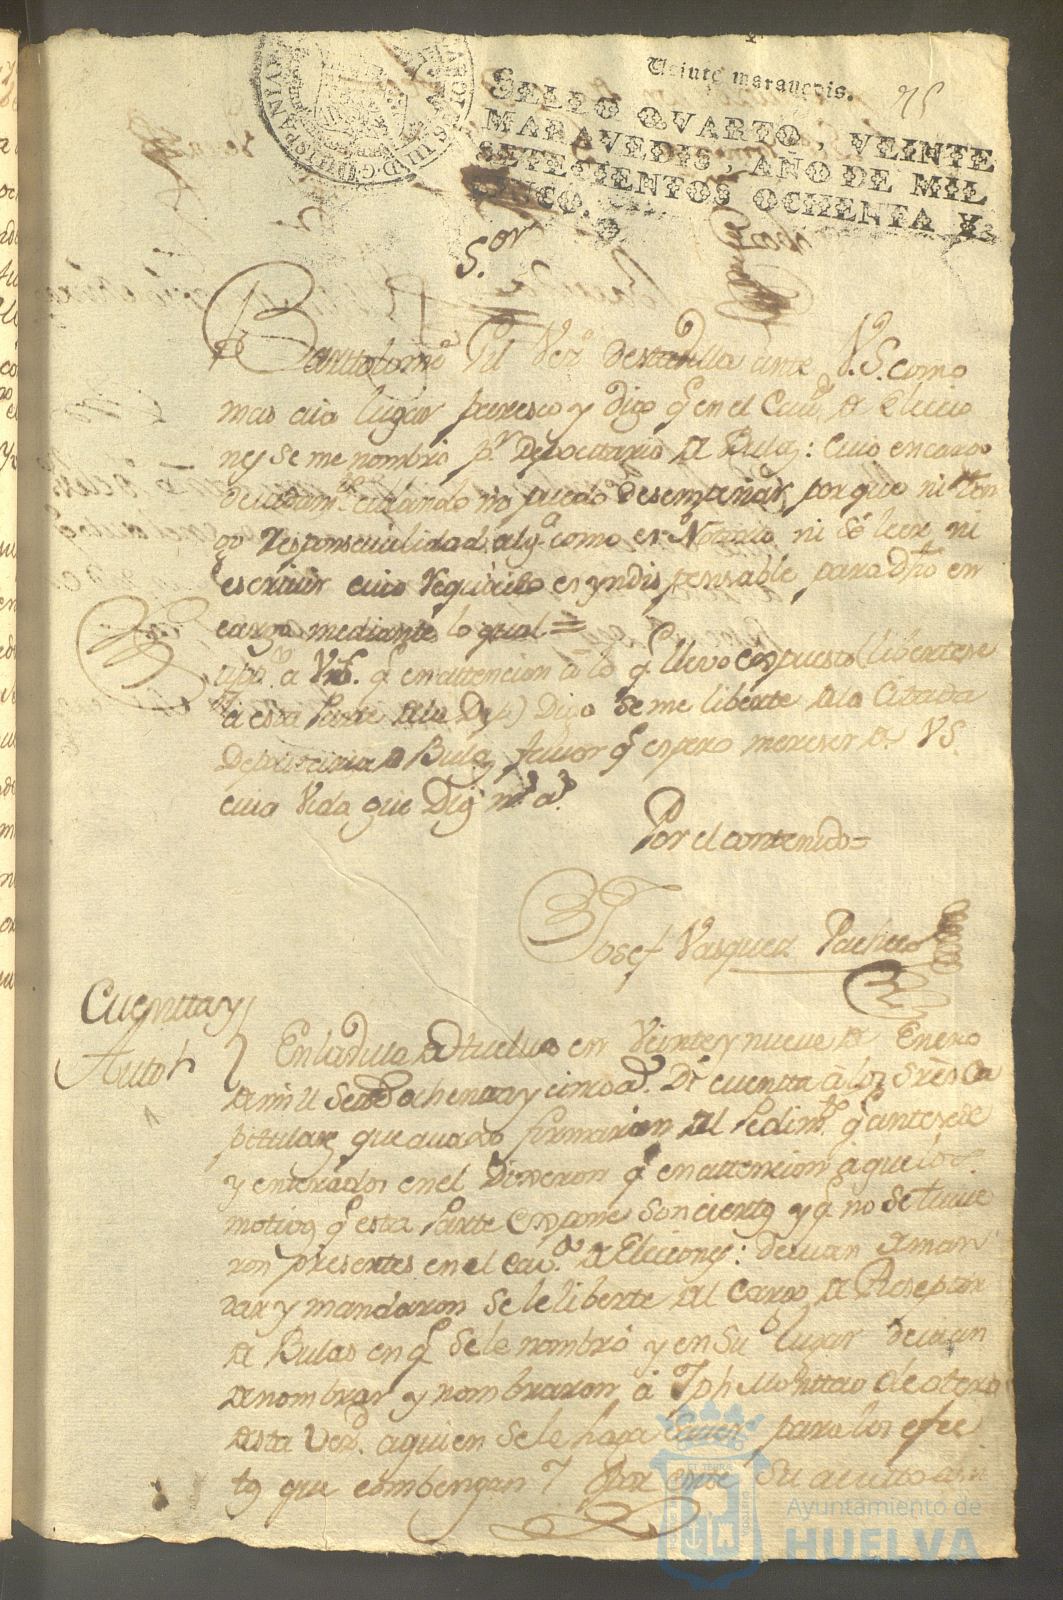 Veinte maravedis.
75
SELLO QVARTO, VEINTE
MARAVEDIS, AÑO DE MIL
SETECIENTOS OCHENTA Y
CINCO.
S.or
Barttolomé Gil Vez.o Destadilla ante V.S. como
mas aia lugar paresco y digo q.e en el Cav.do de Eleccio
nes se me nombró p.r Depocitario de Bulas: Cuio encargo
no puedo desempeñar, por que ni ten
go responsavilidad alg.a como es Notorio, ni sé leer, ni
escrivir cuio requisito es yndispensable para dho en
cargo mediante lo qual=
a V.S. q.e en attencion á lo q.e llevo expuesto (libertese
á esta Parte de la Dep.) Digo Se me liberte de la Citada
Depocitaria de Bulas favor q.e espero mereser de V.S.
cuia Vida gue Dios m.s a.s
Por el contenido=
Josef Vasquez Pacheco
Cuentta y
Auto
En la villa de Huelva en Veinte y nueve de Enero
de mil Sett.s ochenta y cinco a.s Di cuenta á los S.res Ca
pitulares que avaxo firmarán del Pedim.to q.e antesede
y enterados en el Dixeron q.e en attencion á que los
motivos q.e esta Parte Expone Son ciertos y q.e no Se tuvie
ron presentes en el Cav.do de Eleciones: devian de man
dar y mandaron Se le liberte del Cargo de Reseptor
de Bulas en q.e Se le nombró y en Su lugar devian
de nombrar y nombraron á Jph Montiao de otero
desta Vez.d a quien Se le haga saver para los efec
tos que combengan y por este Su autto asi
Ayuntamiento de
HUELVA